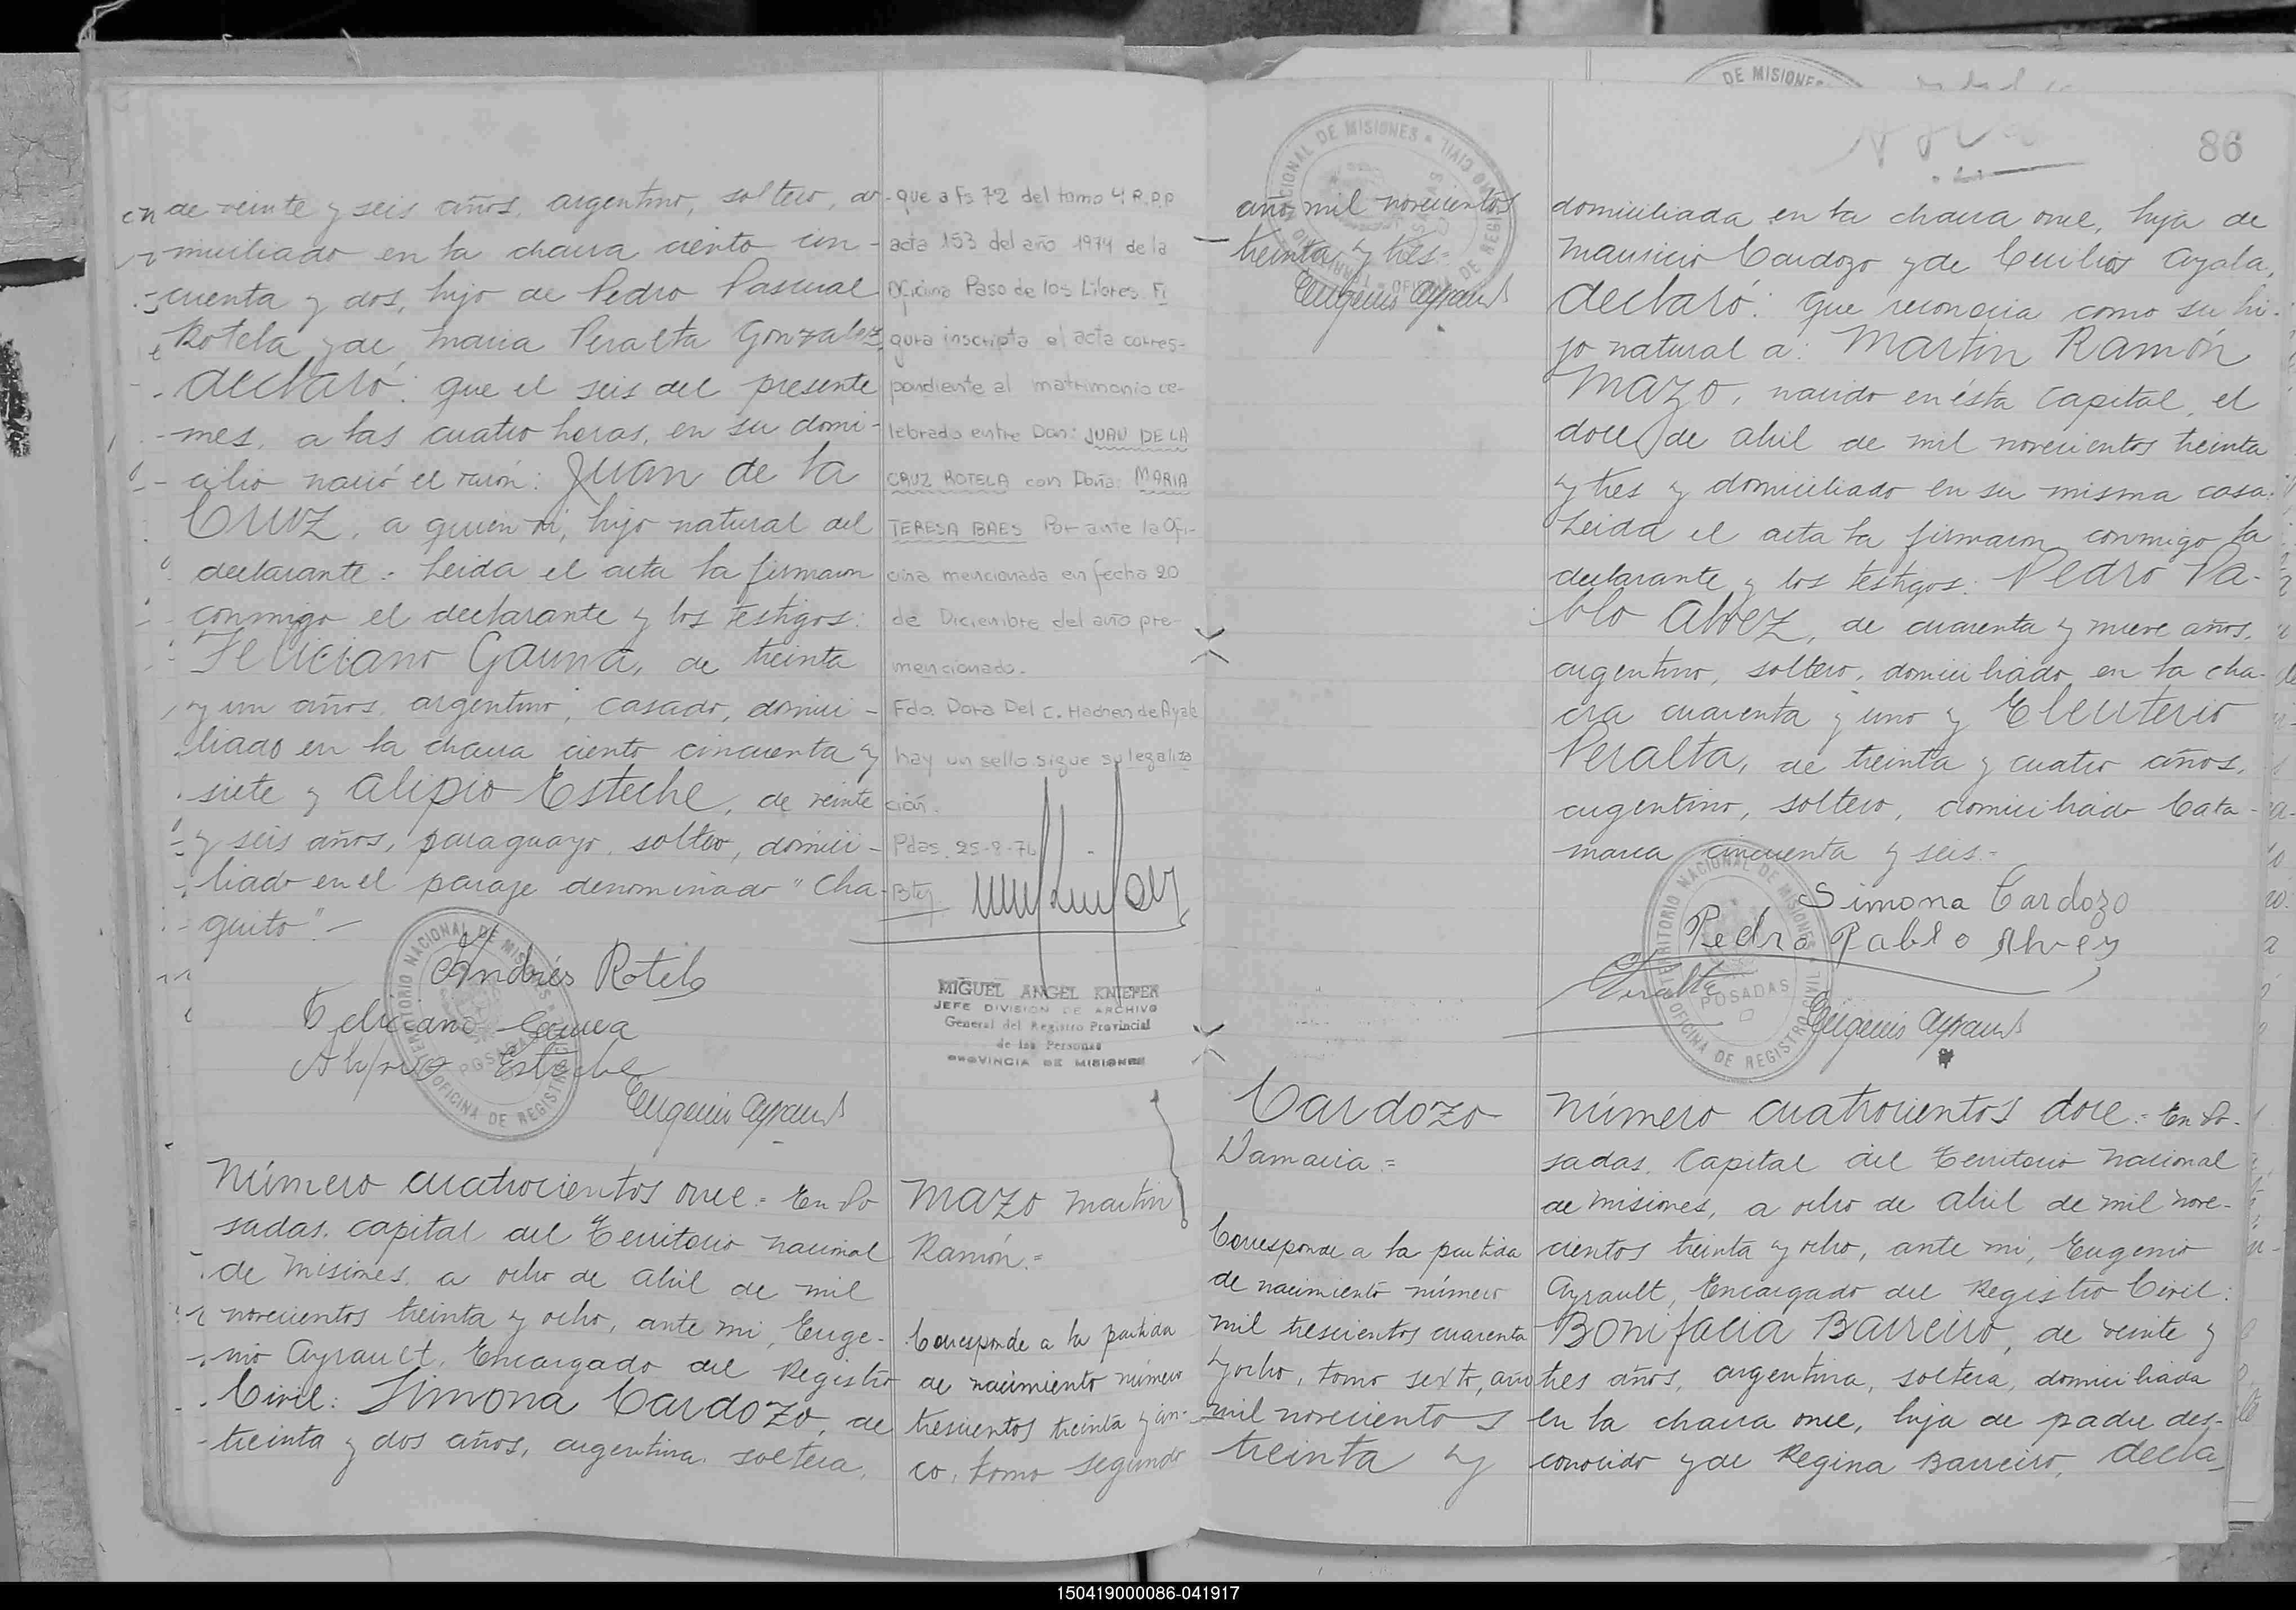 de veinte y seis años, argentino, soltero, do-
miciliado en la chacra ciento cin-
cuenta y dos, hijo de Pedro Pascual
Rotela y de Maria Peralta Gonzalez,
declaró: que el seis del presente
mes, a las cuatro horas, en su domi-
cilio nació el varón: Juan de la
Cruz, a quien vi, hijo natural del
declarante.= Leida el acta la firmaron
conmigo el declarante y los testigos:
Feliciano Gauna, de treinta
y un años, argentino, casado, domici-
liado en la chacra ciento cincuenta y
siete y Alipio Esteche, de veinte
y seis años, paraguayo, soltero, domici-
liado en el paraje denominado "Cha-
quito".-
Andrés Rotela
Feliciano Gauna
Alipio Esteche
Eugenio Ayrault
TERRITORIO NACIONAL DE MISIONES
POSADAS
OFICINA DE REGISTRO CIVIL
que a Fs 72 del tomo 4 R.P.P
acta 153 del año 1974 de la
Oficina Paso de los Libres. Fi
gura inscripta el acta corres-
pondiente al matrimonio ce-
lebrado entre Don: JUAN DE LA
CRUZ ROTELA con Doña: MARIA
TERESA BAES Por ante la Ofi-
cina mencionada en fecha 20
de Diciembre del año pre-
mencionado.
Fdo. Dora Del C. de Ayala
hay un sello sigue su legaliza
ción.
Pdas. 25-8-76
MIGUEL ANGEL KNIEPER
JEFE DIVISION DE ARCHIVO
General del Registro Provincial
de las Personas
PROVINCIA DE MISIONES
Número cuatrocientos once.= En Po
sadas, capital del Territorio Nacional
de Misiones, a ocho de abril de mil
novecientos treinta y ocho, ante mi, Euge-
nio Ayrault, Encargado del Registro
Civil: Simona Cardozo, de
treinta y dos años, argentina, soltera,
Mazo Martin
Ramón.=
Corresponde a la partida
de nacimiento número
trescientos treinta y cin-
co, tomo segundo
86
año mil novecientos
treinta y tres.=
Eugenio Ayrault
TERRITORIO NACIONAL DE MISIONES
OFICINA DE REGISTRO CIVIL
DE MISIONES
domiciliada en la chacra once, hija de
Mauricio Cardozo y de Cecilia Ayala,
declaró: que reconocia como su hi-
jo natural a: Martin Ramón
Mazo, nacido en ésta Capital, el
doce de abril de mil novecientos treinta
y tres y domiciliado en su misma casa.
Leida el acta la firmaron conmigo la
declarante y los testigos: Pedro Pa-
blo Alvez, de cuarenta y nueve años,
argentino, soltero, domiciliado en la cha-
cra cuarenta y uno y Eleuterio
Peralta, de treinta y cuatro años,
argentino, soltero, domiciliado Cata-
marca cincuenta y seis.=
Simona Cardozo
Pedro Pablo Alvez
Peralta
Eugenio Ayrault
TERRITORIO NACIONAL DE MISIONES
POSADAS
OFICINA DE REGISTRO CIVIL
Cardozo
Damacia=
Corresponde a la partida
de nacimiento número
mil trescientos cuarenta
y ocho, tomo sexto, año
mil novecientos
treinta y
Número cuatrocientos doce.= En Po-
sadas, Capital del Territorio Nacional
de Misiones, a ocho de abril de mil nove-
cientos treinta y ocho, ante mi, Eugenio
Ayrault, Encargado del Registro Civil:
Bonifacia Barreiro, de veinte y
tres años, argentina, soltera, domiciliada
en la chacra once, hija de padre des-
conocido y de Regina Barreiro, decla
150419000086-041917